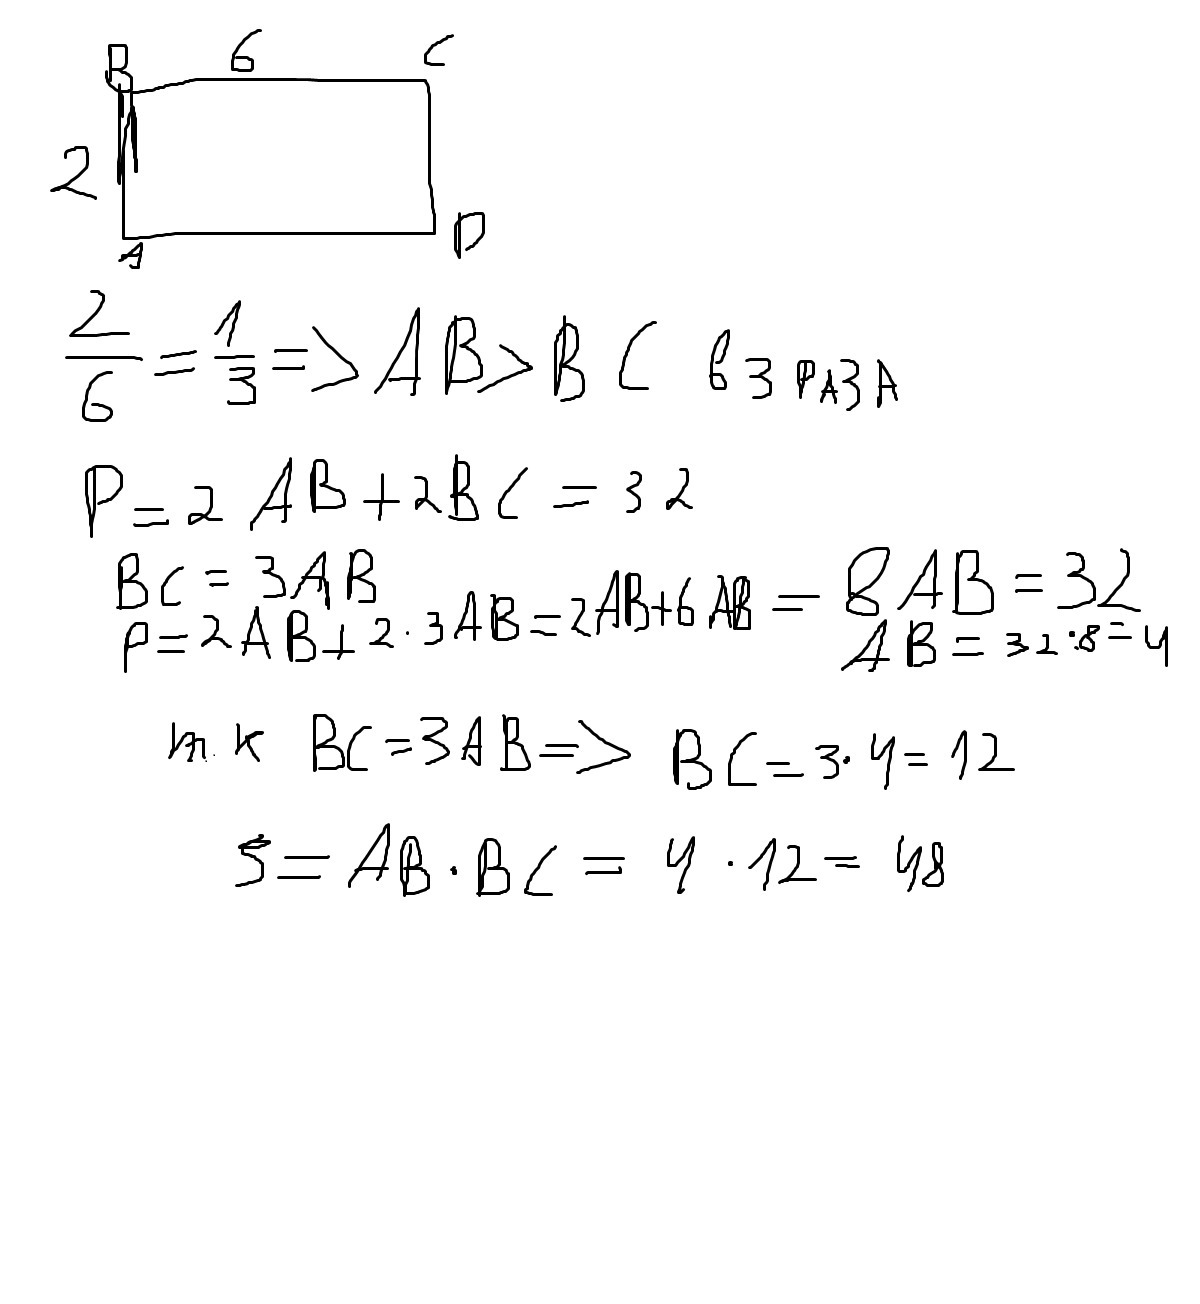 B 6 C
2
A D
2/6 = 1/3 => AB > BC в 3 РАЗА
P = 2 AB + 2BC = 32
BC = 3AB
P = 2AB + 2 · 3AB = 2AB + 6AB = 8AB = 32
AB = 32 : 8 = 4
т.к BC = 3AB => BC = 3 · 4 = 12
S = AB · BC = 4 · 12 = 48